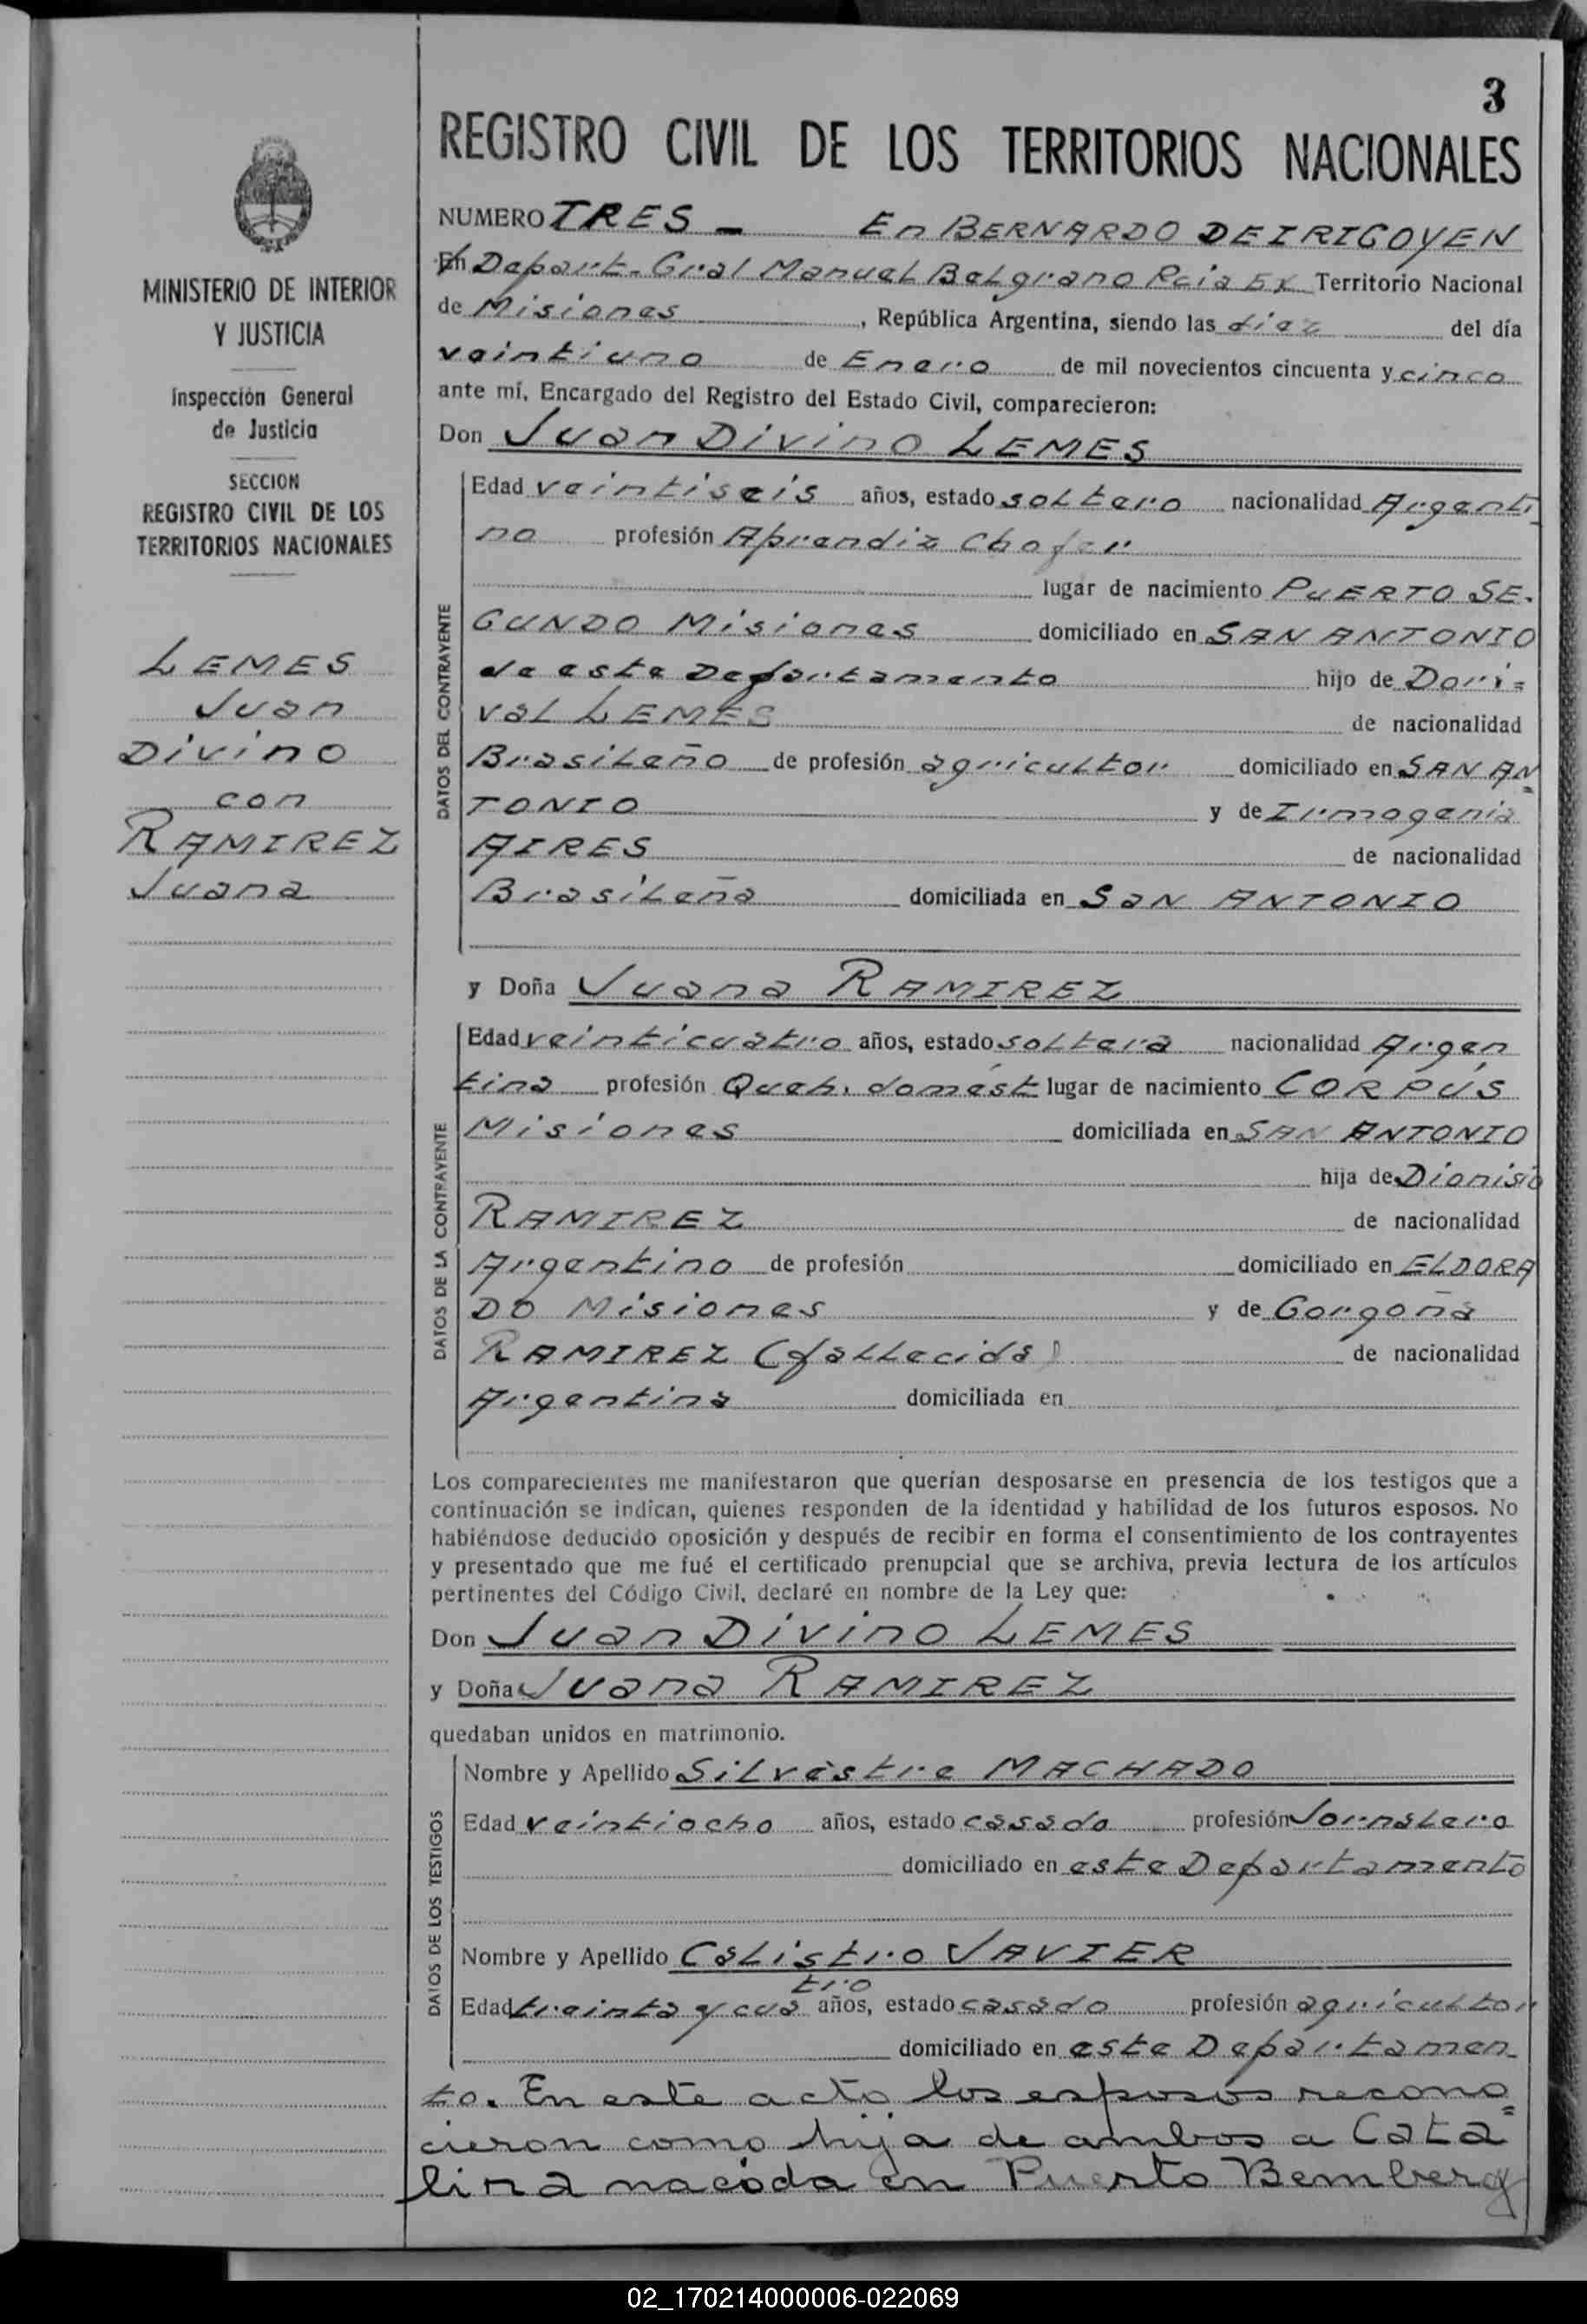 3
REGISTRO CIVIL DE LOS TERRITORIOS NACIONALES
NUMERO TRES - En BERNARDO DE IRIGOYEN
En Depart. Gral Manuel Belgrano Pcia Ex Territorio Nacional
de Misiones, República Argentina, siendo las diez del día
veintiuno de Enero de mil novecientos cincuenta y cinco
ante mí, Encargado del Registro del Estado Civil, comparecieron:
Don Juan Divino LEMES
DATOS DEL CONTRAYENTE
Edad veintiseis años, estado soltero nacionalidad Argenti
no profesión Aprendiz Chofer
lugar de nacimiento PUERTO SE-
GUNDO Misiones domiciliado en SAN ANTONIO
de este Departamento hijo de Dori=
val LEMES de nacionalidad
Brasileño de profesión agricultor domiciliado en SAN AN=
TONIO y de Irmogenia
AIRES de nacionalidad
Brasileña domiciliada en SaN ANTONIO
y Doña Juana RAMIREZ
DATOS DE LA CONTRAYENTE
Edad veinticuatro años, estado soltera nacionalidad Argen
tina profesión Queh. domést lugar de nacimiento CORPUS
Misiones domiciliada en SAN ANTONIO
hija de Dionisio
RAMIREZ de nacionalidad
Argentino de profesión domiciliado en ELDORA
DO Misiones y de Gorgoña
RAMIREZ (fallecida) de nacionalidad
Argentina domiciliada en
Los comparecientes me manifestaron que querían desposarse en presencia de los testigos que a
continuación se indican, quienes responden de la identidad y habilidad de los futuros esposos. No
habiéndose deducido oposición y después de recibir en forma el consentimiento de los contrayentes
y presentado que me fué el certificado prenupcial que se archiva, previa lectura de los artículos
pertinentes del Código Civil, declaré en nombre de la Ley que:
Don Juan Divino LEMES
y Doña Juana RAMIREZ
quedaban unidos en matrimonio.
DATOS DE LOS TESTIGOS
Nombre y Apellido Silvestre MACHADO
Edad veintiocho años, estado casado profesión Jornalero
domiciliado en este Departamento
Nombre y Apellido Calistro JAVIER
tro
Edad treinta y cua años, estado casado profesión agricultor
domiciliado en este Departamen
to. En este acto los esposos recono=
cieron como hija de ambos a Cata
lina nacida en Puerto Bemberg
MINISTERIO DE INTERIOR
Y JUSTICIA
Inspección General
de Justicia
SECCION
REGISTRO CIVIL DE LOS
TERRITORIOS NACIONALES
LEMES
Juan
Divino
con
RAMIREZ
Juana
02_170214000006-022069